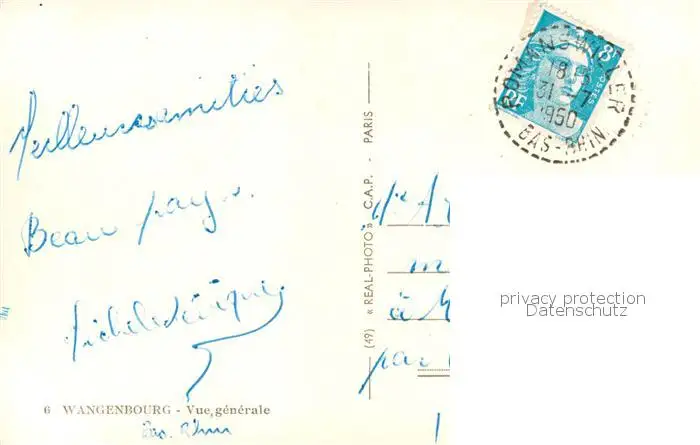 Meilleures amitiés
Beau pays.
6 WANGENBOURG - Vue générale
Bas. Rhin
(49) « REAL-PHOTO » C.A.P. - PARIS
8F
POSTES
ROMANSWILLER
18 H
31 -7
1950
BAS-RHIN
à
par
privacy protection
Datenschutz